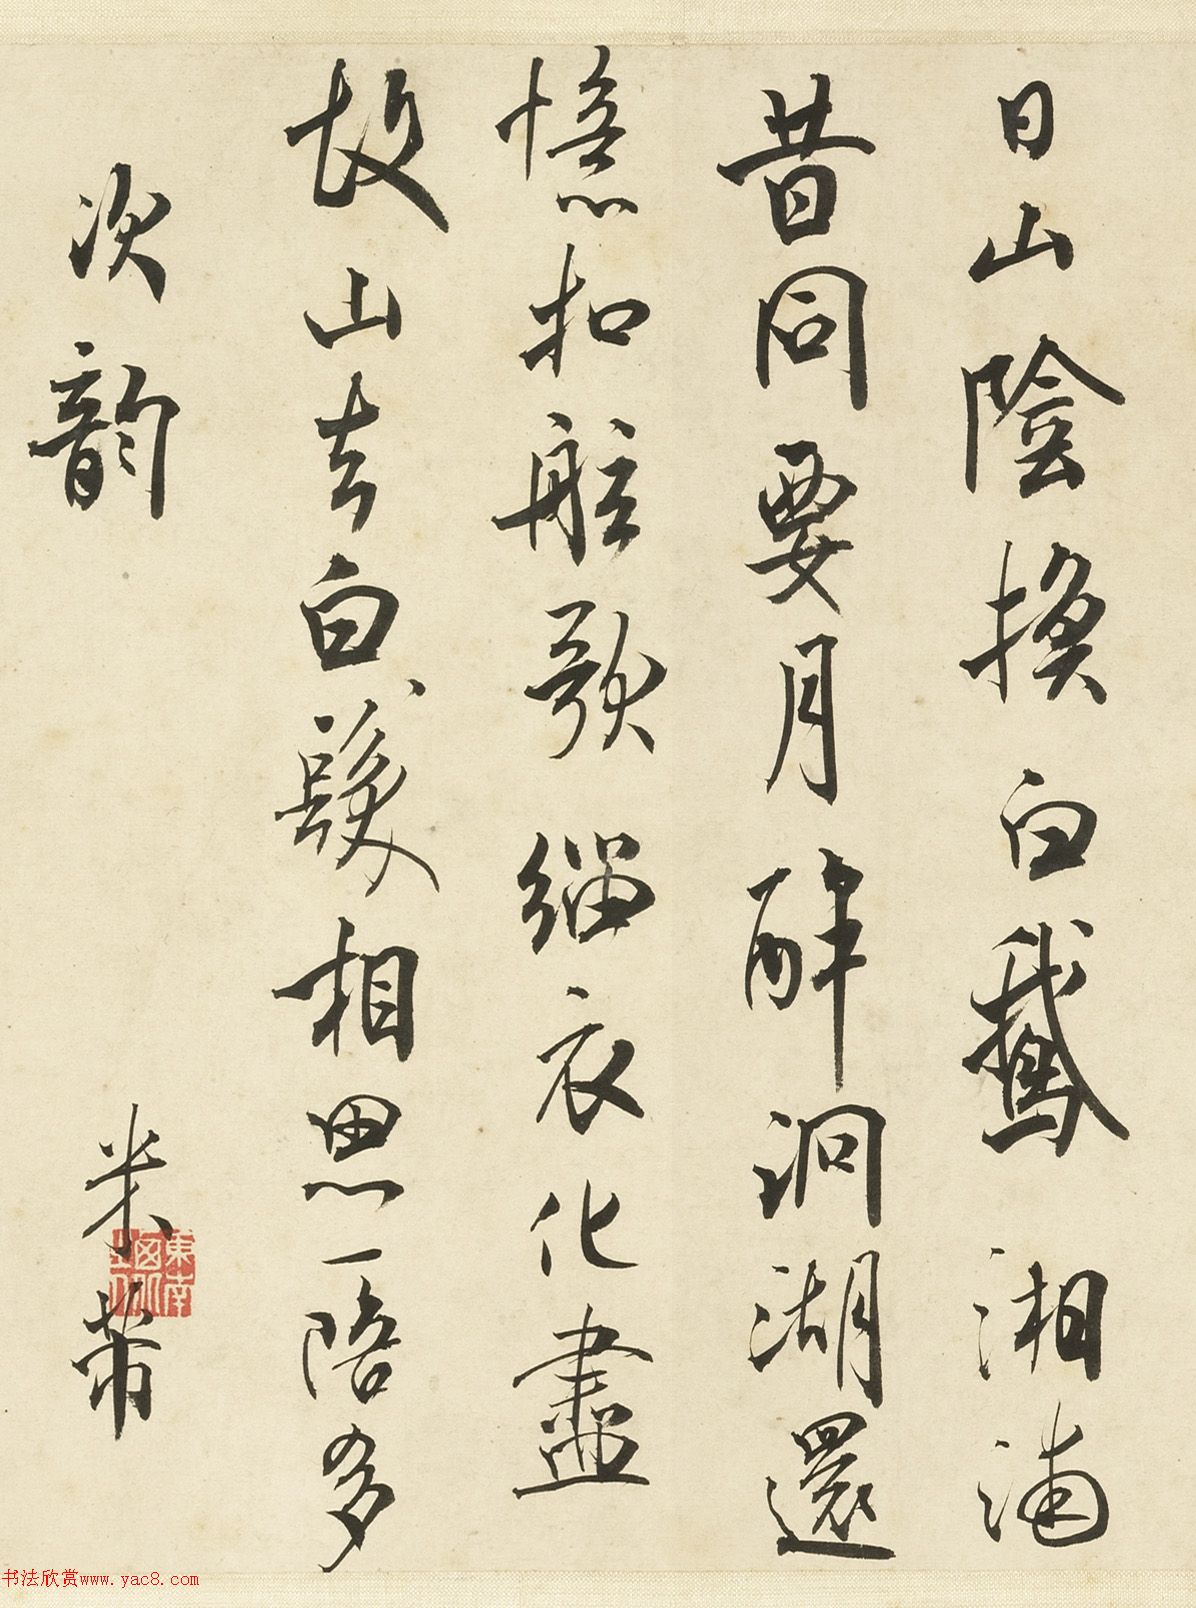 日山陰換白鵝湘浦
昔同要月醉洞湖還
憶扣舷歌緇衣化盡
故山去白髮相思一陪多
次韵
米芾
東南
書法欣赏www.yac8.com